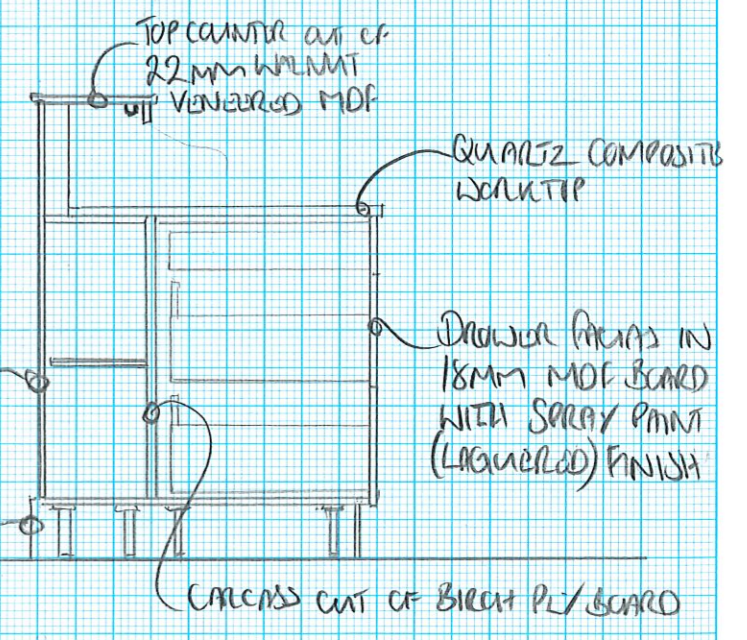 TOP COUNTER OUT OF
22MM WALNUT
VENEERED MDF
QUARTZ COMPOSITE
WORKTOP
DRAWER FACIAS IN
18MM MDF BOARD
WITH SPRAY PAINT
(LAQUERED) FINISH
CARCASS OUT OF BIRCH PLY BOARD